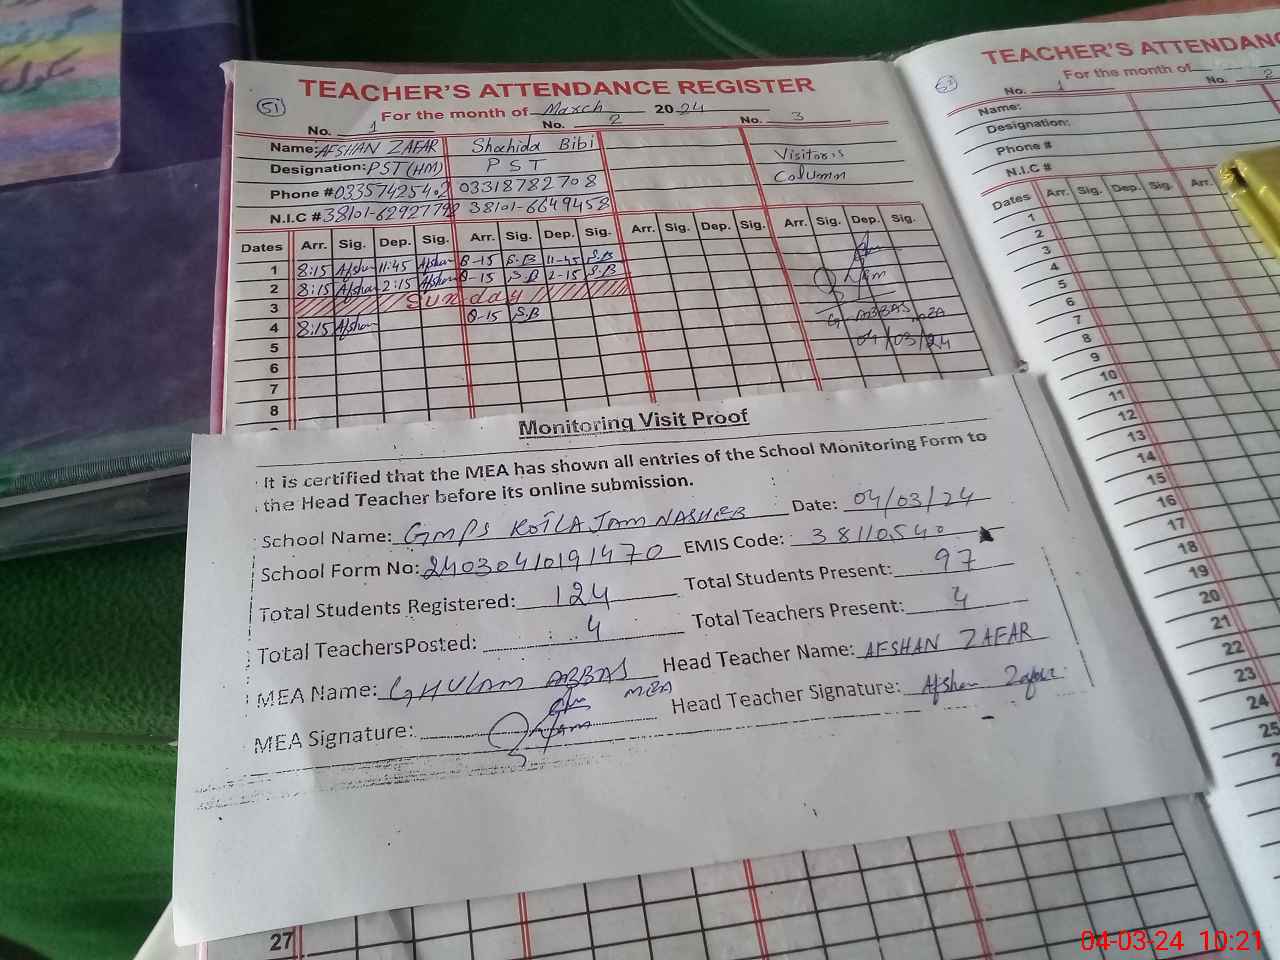 TEACHER'S ATTENDANCE REGISTER
51
For the month of March 2024
No. 1 No. 2 No. 3
Name: AFSHAN ZAFAR Shahida Bibi
Designation: PST (HM) PST Visitor's Column
Phone # 03357425402 03318782708
N.I.C # 38101-6292779 38101-6649458
Dates Arr. Sig. Dep. Sig. Arr. Sig. Dep. Sig. Arr. Sig. Dep. Sig. Arr. Sig. Dep. Sig.
1 8:15 Afshan 11:45 Afshan 8-15 S.B 11-45 S.B
2 8:15 Afshan 2:15 Afshan 8-15 S.B 2-15 S.B
3 Sunday
4 8:15 Afshan 8-15 S.B
G. ABBAS
04/03/24
5
6
7
8
Monitoring Visit Proof
It is certified that the MEA has shown all entries of the School Monitoring Form to
the Head Teacher before its online submission.
School Name: GMPS KOTLA JAM NASHEB Date: 04/03/24
School Form No: 24030410191470 EMIS Code: 38110540
Total Students Registered: 124 Total Students Present: 97
Total TeachersPosted: 4 Total Teachers Present: 4
MEA Name: GHULAM ABBAS Head Teacher Name: AFSHAN ZAFAR
MEA
MEA Signature: Head Teacher Signature: Afshan Zafar
27
TEACHER'S ATTENDANC
For the month of
No. 1 No. 2
Name:
Designation:
Phone #
N.I.C #
Dates Arr. Sig. Dep. Sig. Arr.
1
2
3
4
5
6
7
8
9
10
11
12
13
14
15
16
17
18
19
20
21
22
23
24
25
04-03-24 10:21